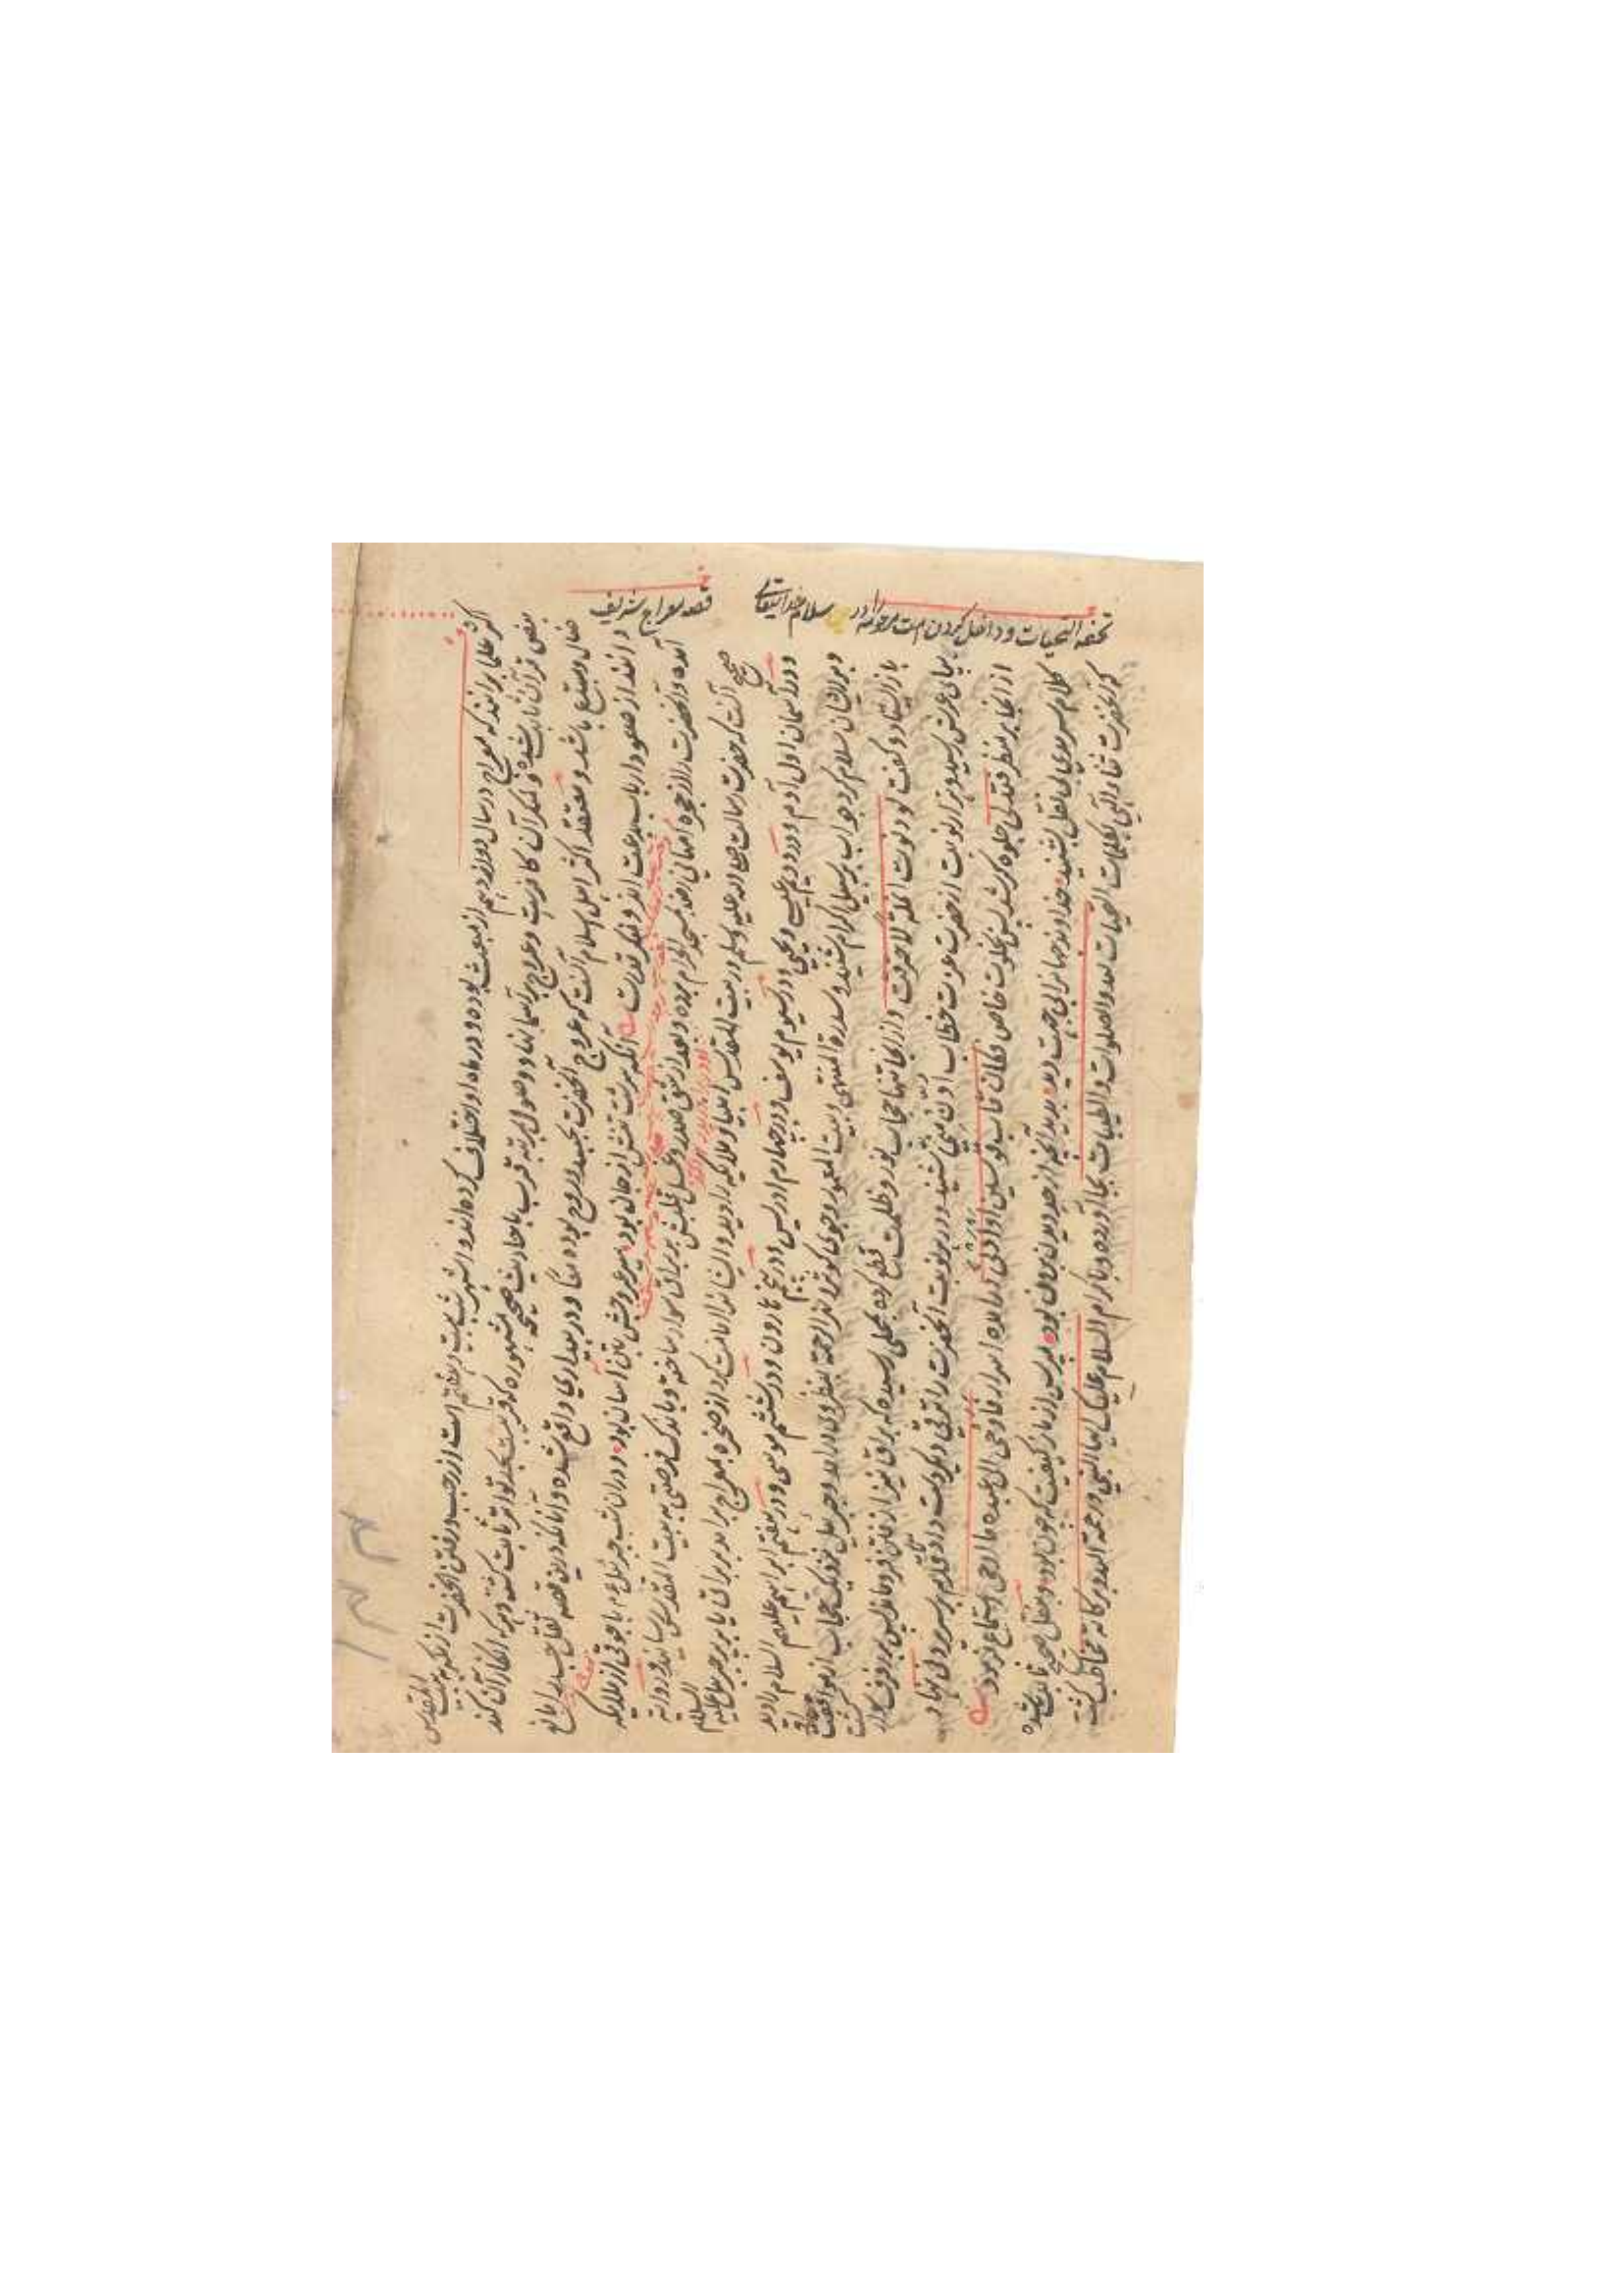 قصه معراج شریف
تحفه التحیات و داخل کردن امت مرحومه را در سلام خدایتعالی
اکثر علما برانند که معراج در سال دوازدهم از مبعث بوده و در ماه او اختلاف کرده‌اند و اشهر شب بیست و هفتم است از رجب و رفتن آنحضرت از مکه به بیت المقدس
بنص قرآن ثابت شده و منکر آن کافرست و عروج بر آسمانها و وصول بمرتبه قرب باحادیث صحیحه مشهوره که قریب بحد تواتر ثابت گشته و هر که انکار آن کند
ضال و مبتدع باشد و معتقد اکثر اهل اسلام آنست که عروج آنحضرت بجسد و روح بوده معا و در بیداری واقع شده و آنانکه درین قصه ثقل جسد را مانع
دانند از صعود ارباب بدعت اند و منکر قدرت آنکه سرشت تنش از جان بود سیر عروجش بتن آسان بود و دران شب جبرئیل ع م با جوقی از ملایکه
آمده و آنحضرت را از حجره ام‌هانی بمسجد الحرام برده و بعد از شق صدر و غسل قلبش بر براق سوار ساخته و باندک فرصتی به بیت المقدس رسانید و روایة
صحیح آنست که حضرت رسالت صلی الله علیه وسلم در بیت المقدس انبیا و ملایکه را دید و ایشانرا امامت کرد از صخره بمعراج برآمد بر براق یا بر پر جبرئیل علیه السلام
و در آسمان اول آدم و در دویم عیسی و یحیی و در سیوم یوسف و در چهارم ادریس و در پنجم هارون و در ششم موسی و در هفتم ابراهیم علیهم السلام را دید
و برایشان سلام کرد جواب بر سبیل اکرام شنید و سدرة المنتهی و بیت المعمور و جوی کوثر و نهر الرحمة بنظر وی درآمد و جبرئیل نزدیک حجاب از موافقت
باز ایستاد و گفت لو دنوت انملة لاحترقت و از آنجا تنها حجاب نور و ظلمت قطع کرده بمحلی رسیده که براق نیز از رفتن فرو ماند پس بر رفرف سوار گشت
بپای عرش رسید و هزار نوبت از حضرت عزت خطاب ادن منی شنید و در هر نوبت آنحضرت را ترقی دیگر دست داد تا قدم بر سر دنی نهاد
از آنجا بر منظر فتدلی جلوه گر شد پس بخلوت خاص فکان قاب قوسین او ادنی درآمده اسرار فاوحی الی عبده ما اوحی استماع فرمود
کلام سرمدی بی نقل بشنید خداوند جهانرا بی جهت دید بدید آنچه از حد دیدن برون بود مپرس از ما ز کیفیت که چون بود و بنقل صحیح ثابت شده
که آنحضرت ثناء الهی بکلمات التحیات لله والصلوات والطیبات بجا آورده و باکرام السلام علیک ایها النبی ورحمة الله وبرکاته مخاطب گشت